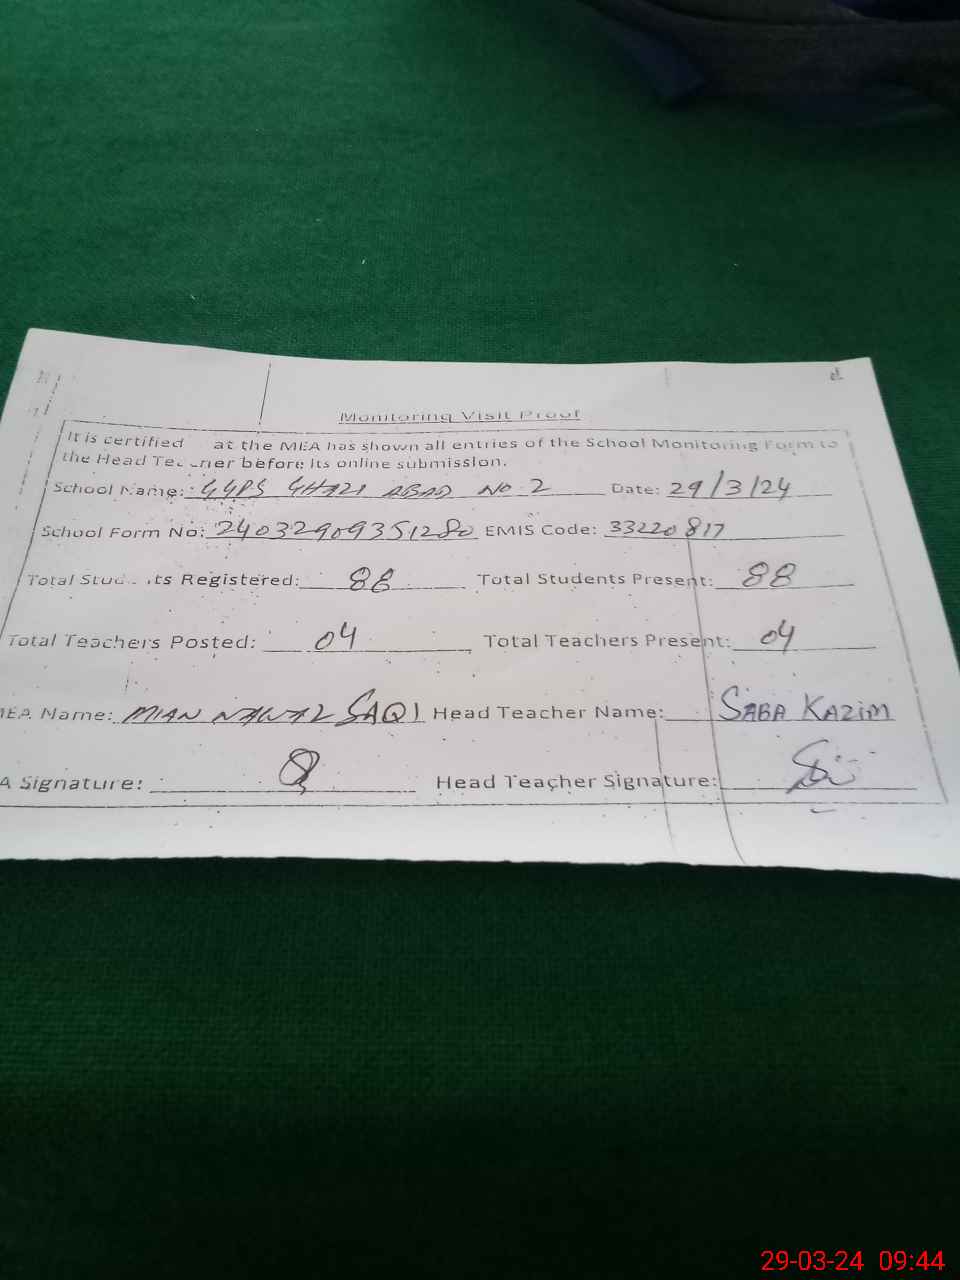 Monitoring Visit Proof
It is certified at the MEA has shown all entries of the School Monitoring Form to
the Head Teacher before its online submission.
School Name: GGPS GHAZI ABAD NO 2 Date: 29/3/24
School Form No: 24032909351280 EMIS Code: 33220817
Total Students Registered: 88 Total Students Present: 88
Total Teachers Posted: 04 Total Teachers Present: 04
MEA Name: MIAN NAWAZ SAQI Head Teacher Name: SABA KAZIM
A Signature: Head Teacher Signature:
29-03-24 09:44